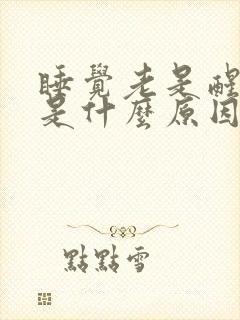 睡覺老是醒
是什麼原因
點點雪